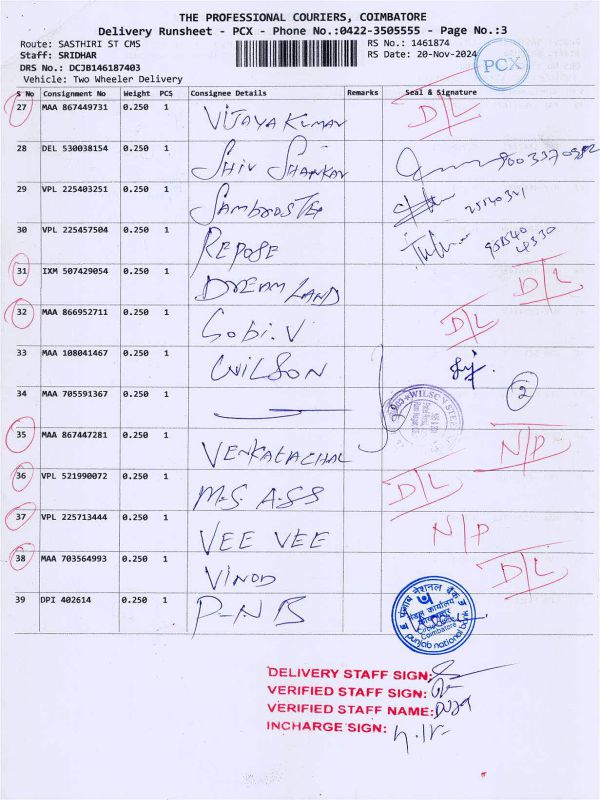 THE PROFESSIONAL COURIERS, COIMBATORE
Delivery Runsheet - PCX - Phone No.:0422-3505555 - Page No.:3
Route: SASTHIRI ST CMS RS No.: 1461874
Staff: SRIDHAR RS Date: 20-Nov-2024
DRS No.: DCJB146187403
Vehicle: Two Wheeler Delivery
PCX
S No Consignment No Weight PCS Consignee Details Remarks Seal & Signature
27 MAA 867449731 0.250 1 VIJAYA KUMAR D/L
28 DEL 530038154 0.250 1 SHIV SHANKAR
29 VPL 225403251 0.250 1
30 VPL 225457504 0.250 1 REPOSE
31 IXM 507429054 0.250 1 DREAM LAND D/L
32 MAA 866952711 0.250 1 Gobi.V D/L
33 MAA 108041467 0.250 1 WILSON
34 MAA 705591367 0.250 1 2
35 MAA 867447281 0.250 1 VENKATACHAL N/P
36 VPL 521990072 0.250 1 M.S. ASS D/L
37 VPL 225713444 0.250 1 VEE VEE N/P
38 MAA 703564993 0.250 1 VINOD D/L
39 DPI 402614 0.250 1 P-NB
पंजाब नैशनल बैंक
मंडल कार्यालय
कोयम्बटूर
Circle Office
Coimbatore
punjab national bank
DELIVERY STAFF SIGN:
VERIFIED STAFF SIGN:
VERIFIED STAFF NAME:
INCHARGE SIGN: